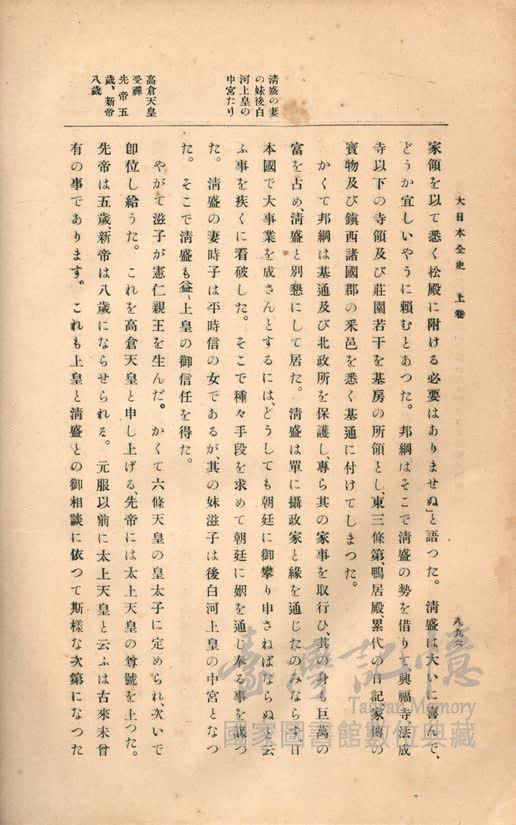 大日本全史　上卷
八九六
家領を以て悉く松殿に附ける必要はありませぬ」と語つた。淸盛は大いに喜んで、
どうか宜しいやうに賴むとあつた。邦綱はそこで淸盛の勢を借りて興福寺法成
寺以下の寺領及び莊園若干を基房の所領とし、東三條第、鴨居殿累代の日記家傳の
寶物及び鎭西諸國郡の釆邑を悉く基通に付けてしまつた。
かくて邦綱は基通及び北政所を保護し、專ら其の家事を取行ひ、其の身も巨萬の
富を占め、淸盛と別懇にして居た。淸盛は單に攝政家と緣を通じたのみならず、日
本國で大事業を成さんとするには、どうしても朝廷に御攀り申さねばならぬと云
ふ事を疾くに看破した。そこで種々手段を求めて朝廷に姻を通じ奉る事を謀つ
た。淸盛の妻時子は平時信の女であるが、其の妹滋子は後白河上皇の中宮となつ
た。そこで淸盛も益〻上皇の御信任を得た。
やがて滋子が憲仁親王を生んだ。かくて六條天皇の皇太子に定められ、次いで
卽位し給うた。これを高倉天皇と申し上げる、先帝には太上天皇の尊號を上つた。
先帝は五歲、新帝は八歲にならせられる。元服以前に太上天皇と云ふは古來未曾
有の事であります。これも上皇と淸盛との御相談に依つて斯樣な次第になつた
淸盛の妻
の妹後白
河上皇の
中宮たり
高倉天皇
受禪
先帝五
歲、新帝
八歲
臺灣記憶
Taiwan Memory
國家圖書館數位典藏